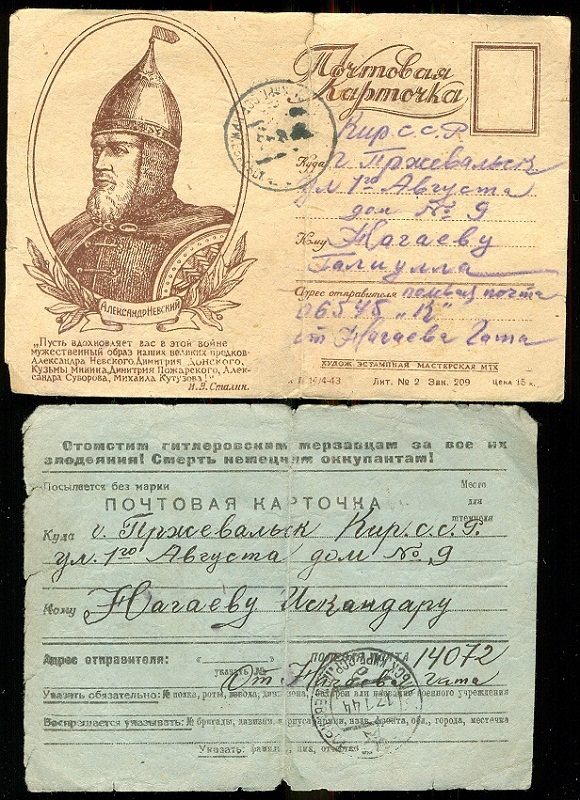 Почтовая
Карточка
Кир с.с.Р.
Куда г. Пржевальск
ул 1го Августа
дом № 9
Кому Нагаеву
Галиулла
Адрес отправителя полевая почта
06545 "К"
от Нагаева Гата
АЛЕКСАНДР НЕВСКИЙ
„Пусть вдохновляет вас в этой войне
мужественный образ наших великих предков-
Александра Невского, Димитрия Донского,
Кузьмы Минина, Димитрия Пожарского, Алек-
сандра Суворова, Михаила Кутузова!"
И. В. Сталин.
ХУДОЖ. ЭСТАМПНАЯ МАСТЕРСКАЯ МТХ
4-43 Лит. № 2 Зак. 209 Цена 15 к.
Отомстим гитлеровским мерзавцам за все их
злодеяния! Смерть немецким оккупантам!
Посылается без марки
Место
для
штемпеля
ПОЧТОВАЯ КАРТОЧКА
Куда г. Пржевальск Кир. с.с.Р.
ул. 1го Августа дом № 9
Кому Нагаеву Искандару
Адрес отправителя: "
указать №
ПОЛЕВАЯ ПОЧТА 14072
От Нагаева Гата
17 1 44
Указать обязательно: № полка, роты, взвода, дивизиона, батареи или название военного учреждения
Воспрещается указывать: № бригады, дивизии, корпуса, армии, назв. фронта, обл., города, местечка
Указать: фамилию, имя, отчество